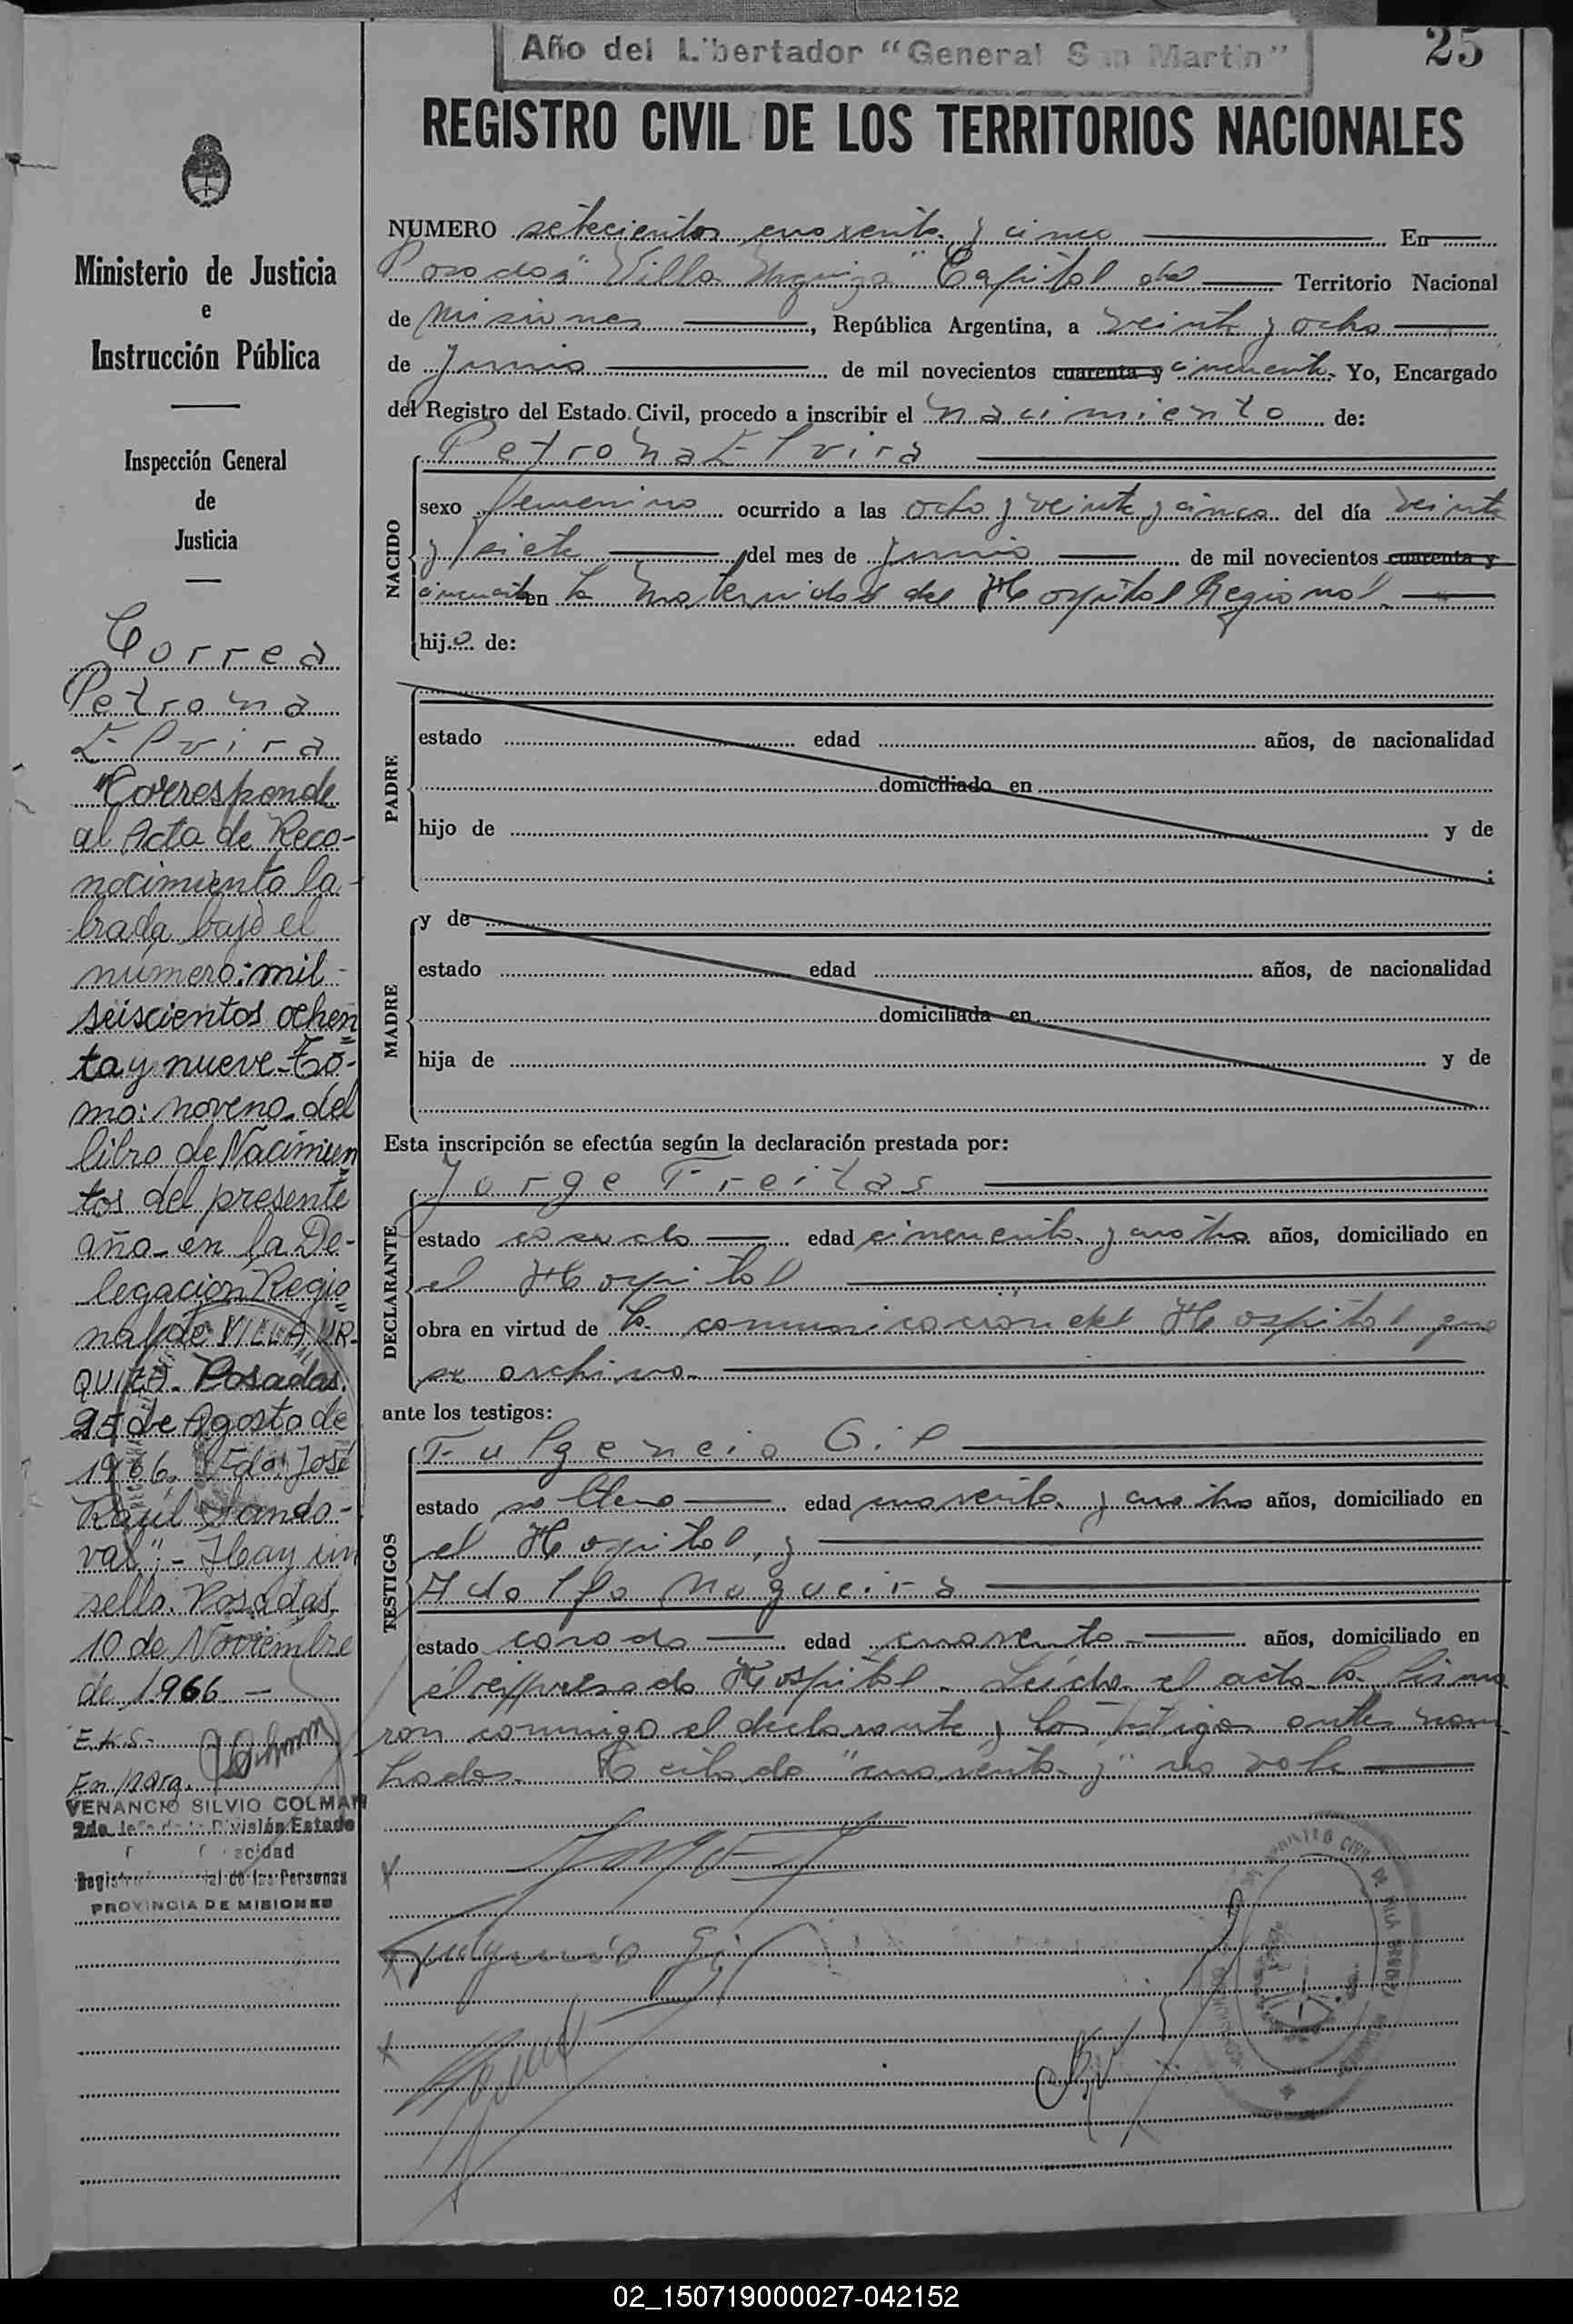 Año del Libertador "General San Martín"
25
REGISTRO CIVIL DE LOS TERRITORIOS NACIONALES
Ministerio de Justicia
e
Instrucción Pública
Inspección General
de
Justicia
Correa
Petrona
Elvira
"Corresponde
al Acta de Reco-
nocimiento la-
brada bajo el
número: mil
seiscientos ochen
ta y nueve - To-
mo: noveno del
libro de Nacimien
tos del presente
año en la De-
legación Regio
nal de VILLA UR-
QUIZA. Posadas,
25 de Agosto de
1966. Fdo: José
Raúl Sando-
val".- Hay un
sello. Posadas,
10 de Noviembre
de 1966 -
En Marg.
VENANCIO SILVIO COLMAN
2do. Jefe de la División Estado
acidad
Registro de las Personas
PROVINCIA DE MISIONES
NUMERO setecientos cuarenta y cinco En
Posadas "Villa Urquiza" Capital del Territorio Nacional
de Misiones, República Argentina, a veinte y ocho
de Junio de mil novecientos cuarenta y cincuenta. Yo, Encargado
del Registro del Estado Civil, procedo a inscribir el nacimiento de:
NACIDO
Petrona Elvira
sexo femenino ocurrido a las ocho y veinte y cinco del día veinte
y siete del mes de Junio de mil novecientos cuarenta y
cincuenta en la Maternidad del Hospital Regional.
hija de:
PADRE
estado edad años, de nacionalidad
domiciliado en
hijo de y de
;
MADRE
y de
estado edad años, de nacionalidad
domiciliada en
hija de y de
Esta inscripción se efectúa según la declaración prestada por:
DECLARANTE
Jorge Freitas
estado casado edad cincuenta y cuatro años, domiciliado en
el Hospital
obra en virtud de la comunicación del Hospital que
se archiva.
ante los testigos:
TESTIGOS
Fulgencio Gil
estado soltero edad cuarenta y cuatro años, domiciliado en
el Hospital, y
Adolfo Nogueira
estado casado edad cuarenta años, domiciliado en
el expresado Hospital. Leída el acta la firma
ron conmigo el declarante y los testigos antes nom-
brados. El citado "cuarenta y" no vale
Fulgencio Gil
02_150719000027-042152